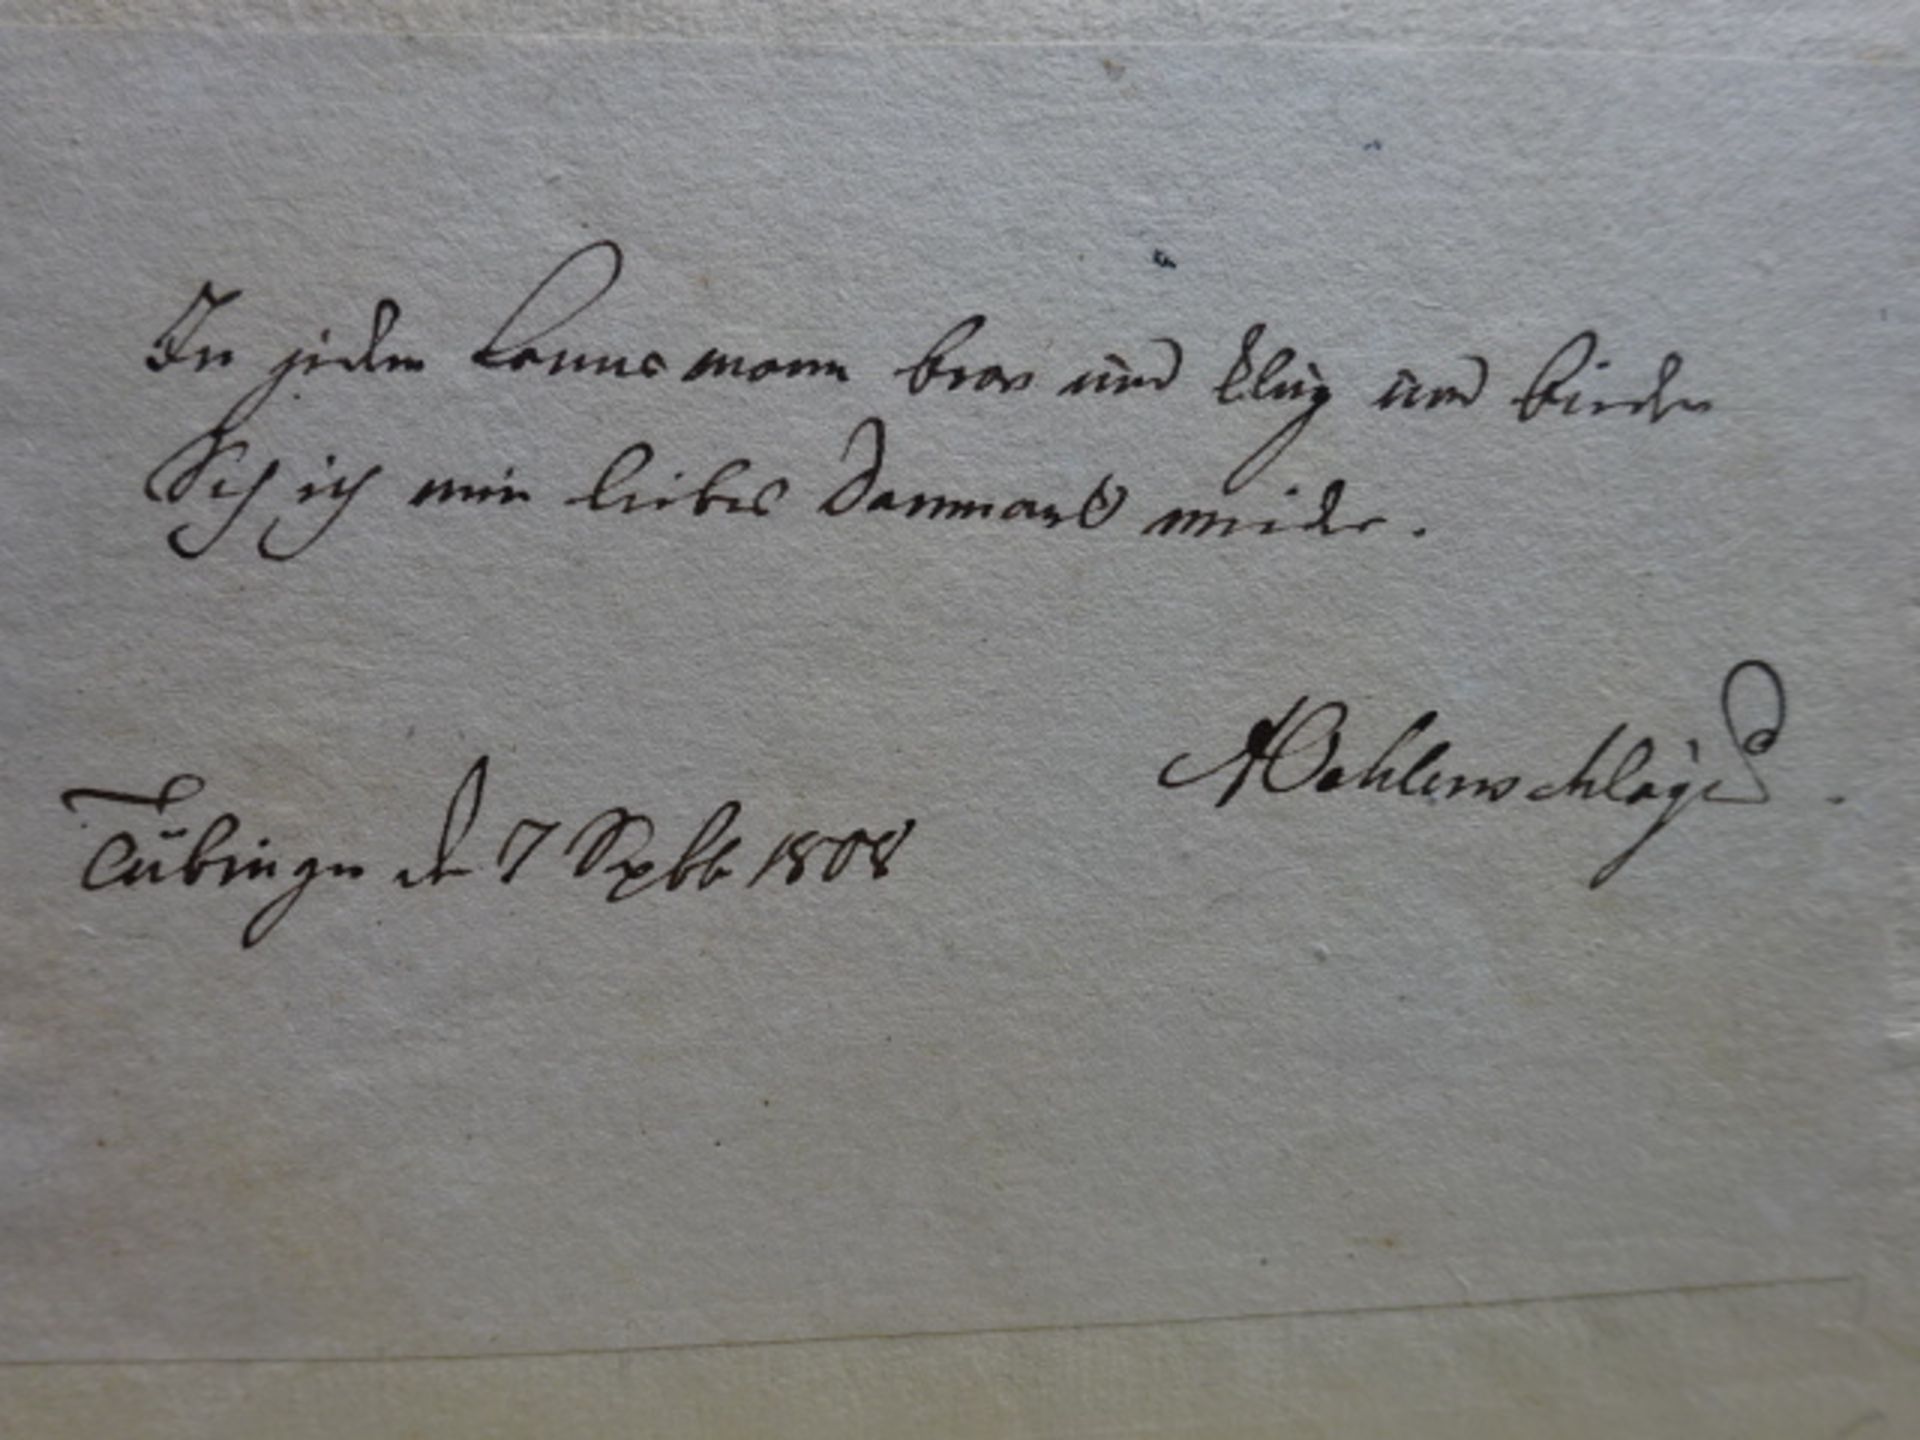 In jedem Landsmann brav und klug und bieder
Seh ich mein liebes Dannmark wieder.
AOehlenschläger.
Tübingen den 7 Septbr 1808